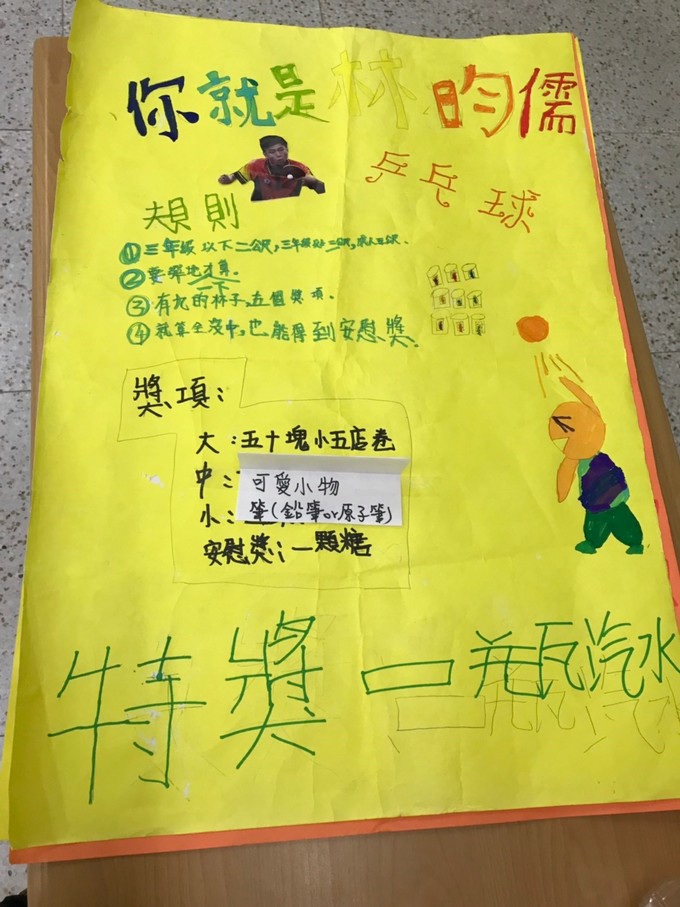 你就是林昀儒
乒乓球
規則
①三年級以下二公尺,三年級以上三公尺,成人五尺.
②要彈地一下才算.
③有九的杯子,五個獎項.
④就算全沒中,也能得到安慰獎.
獎項:
大:五十塊小五店卷
中:可愛小物
小:筆(鉛筆or原子筆)
安慰獎:一顆糖
特獎一瓶汽水